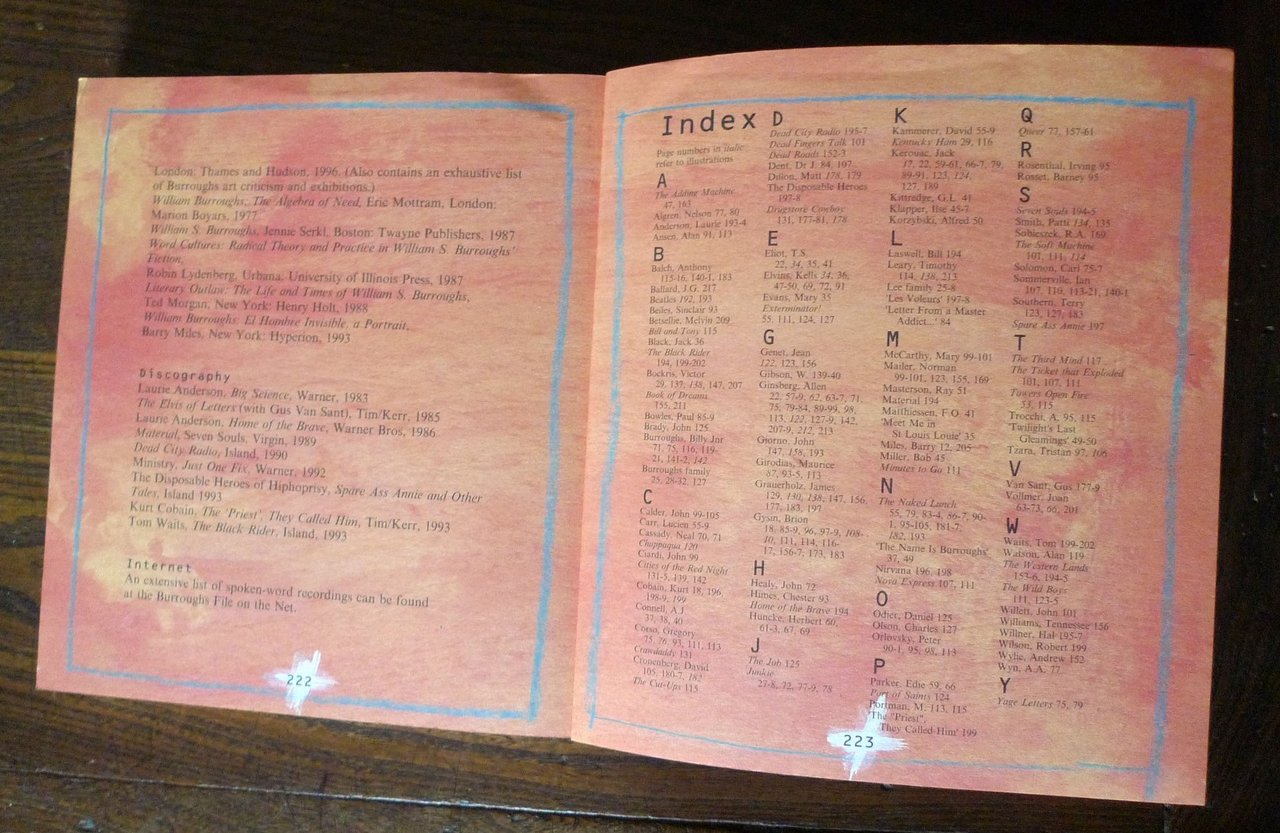 London: Thames and Hudson, 1996. (Also contains an exhaustive list
of Burroughs art criticism and exhibitions.)
William Burroughs: The Algebra of Need, Eric Mottram, London:
Marion Boyars, 1977
William S. Burroughs, Jennie Serkl, Boston: Twayne Publishers, 1987
Word Cultures: Radical Theory and Practice in William S. Burroughs'
Fiction,
Robin Lydenberg, Urbana, University of Illinois Press, 1987
Literary Outlaw: The Life and Times of William S. Burroughs,
Ted Morgan, New York: Henry Holt, 1988
William Burroughs: El Hombre Invisible, a Portrait,
Barry Miles, New York: Hyperion, 1993
Discography
Laurie Anderson, Big Science, Warner, 1983
The Elvis of Letters (with Gus Van Sant), Tim/Kerr, 1985
Laurie Anderson, Home of the Brave, Warner Bros, 1986
Material, Seven Souls, Virgin, 1989
Dead City Radio, Island, 1990
Ministry, Just One Fix, Warner, 1992
The Disposable Heroes of Hiphoprisy, Spare Ass Annie and Other
Tales, Island 1993
Kurt Cobain, The 'Priest', They Called Him, Tim/Kerr, 1993
Tom Waits, The Black Rider, Island, 1993
Internet
An extensive list of spoken-word recordings can be found
at the Burroughs File on the Net.
222
Index
Page numbers in italic
refer to illustrations
A
The Adding Machine
47, 163
Algren, Nelson 77, 80
Anderson, Laurie 193-4
Ansen, Alan 91, 113
B
Balch, Anthony
115-16, 140-1, 183
Ballard, J.G. 217
Beatles 192, 193
Beiles, Sinclair 93
Betsellie, Melvin 209
Bill and Tony 115
Black, Jack 36
The Black Rider
194, 199-202
Bockris, Victor
29, 137, 138, 147, 207
Book of Dreams
155, 211
Bowles, Paul 85-9
Brady, John 125
Burroughs, Billy Jnr
71, 75, 116, 119-
21, 141-2, 142
Burroughs family
25, 28-32, 127
C
Calder, John 99-105
Carr, Lucien 55-9
Cassady, Neal 70, 71
Chappaqua 120
Ciardi, John 99
Cities of the Red Night
131-5, 139, 142
Cobain, Kurt 18, 196,
198-9, 199
Connell, A.J
37, 38, 40
Corso, Gregory
75, 76, 93, 111, 113
Crawdaddy 131
Cronenberg, David
105, 180-7, 182
The Cut-Ups 115
D
Dead City Radio 195-7
Dead Fingers Talk 101
Dead Roads 152-3
Dent, Dr J. 84, 197
Dillon, Matt 178, 179
The Disposable Heroes
197-8
Drugstore Cowboy
131, 177-81, 178
E
Eliot, T.S.
22, 34, 35, 41
Elvins, Kells 34, 36,
47-50, 69, 72, 91
Evans, Mary 35
Exterminator!
55, 111, 124, 127
G
Genet, Jean
122, 123, 156
Gibson, W. 139-40
Ginsberg, Allen
22, 57-9, 62, 63-7, 71,
75, 79-84, 89-99, 98,
113, 122, 127-9, 142,
207-9, 212, 213
Giorno, John
147, 158, 193
Girodias, Maurice
87, 93-5, 113
Grauerholz, James
129, 130, 138, 147, 156,
177, 183, 197
Gysin, Brion
18, 85-9, 96, 97-9, 108-
10, 111, 114, 116-
17, 156-7, 173, 183
H
Healy, John 72
Himes, Chester 93
Home of the Brave 194
Huncke, Herbert 60,
61-3, 67, 69
J
The Job 125
Junkie
27-8, 72, 77-9, 78
K
Kammerer, David 55-9
Kentucky Ham 29, 116
Kerouac, Jack
17, 22, 59-61, 66-7, 79,
89-91, 123, 124,
127, 189
Kittredge, G.L. 41
Klapper, Ilse 45-7
Korzybski, Alfred 50
L
Laswell, Bill 194
Leary, Timothy
114, 138, 213
Lee family 25-8
'Les Voleurs' 197-8
'Letter From a Master
Addict...' 84
M
McCarthy, Mary 99-101
Mailer, Norman
99-101, 123, 155, 169
Masterson, Ray 51
Material 194
Matthiessen, F.O. 41
'Meet Me in
St Louis Louie' 35
Miles, Barry 12, 205
Miller, Bob 45
Minutes to Go 111
N
The Naked Lunch
55, 79, 83-4, 86-7, 90-
1, 95-105, 181-7,
182, 193
'The Name Is Burroughs'
37, 49
Nirvana 196, 198
Nova Express 107, 111
O
Odier, Daniel 125
Olson, Charles 127
Orlovsky, Peter
90-1, 95, 98, 113
P
Parker, Edie 59, 66
Port of Saints 124
Portman, M. 113, 115
'The "Priest",
They Called Him' 199
Q
Queer 77, 157-61
R
Rosenthal, Irving 95
Rosset, Barney 95
S
Seven Souls 194-5
Smith, Patti 134, 135
Sobieszek, R.A. 169
The Soft Machine
101, 111, 114
Solomon, Carl 75-7
Sommerville, Ian
107, 110, 113-21, 140-1
Southern, Terry
123, 127, 183
Spare Ass Annie 197
T
The Third Mind 117
The Ticket that Exploded
101, 107, 111
Towers Open Fire
53, 115
Trocchi, A. 95, 115
'Twilight's Last
Gleamings' 49-50
Tzara, Tristan 97, 106
V
Van Sant, Gus 177-9
Vollmer, Joan
63-73, 66, 201
W
Waits, Tom 199-202
Watson, Alan 119
The Western Lands
153-6, 194-5
The Wild Boys
111, 123-5
Willett, John 101
Williams, Tennessee 156
Willner, Hal 195-7
Wilson, Robert 199
Wylie, Andrew 152
Wyn, A.A. 77
Y
Yage Letters 75, 79
223